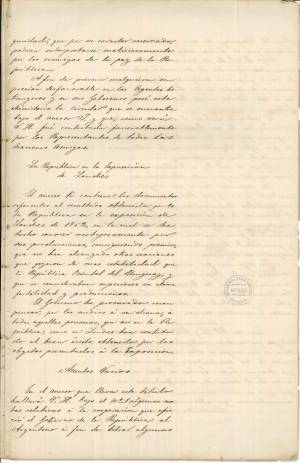 guedades, que por su caracter reservado
podian interpretarse maliciosamente
por los enemigos de la paz de la Re-
pública.
A fin de prevenir cualquiera im-
presion desfavorable en los Agentes Es-
trangeros y en sus Gobiernos pasó este
Ministerio la circular que se encuentra
bajo el anexo y que, como verá
V. H. fué contestada favorablemente
por los Representantes de todas las
Naciones Amigas.
La República en la Exposicion
de Londres
El anexo contiene los documentos
referentes al resultado obtenido por
la República en la exposicion de
Londres de 1862, en la cual se ha
hecho conocer ventajosamente por
sus producciones, consiguiendo premios,
que no han alcanzado otras naciones
que gozaron de mas estabilidad que
la República Oriental del Uruguay, y
que se consideraban superiores en clima
fertilidad y producciones.
El Gobierno ha procurado recom-
pensar, por los medios á su alcance, á
todas aquellas personas, que así en la Re-
pública, como en Londres han contribui-
do al buen éxito obtenido por los
objetos presentados á la Exposicion
Asuntos Varios
En el anexo que lleva este título
hallará V. H. bajo el Nº algunas no-
tas relativas á la cooperacion que ofre-
ció el Gobierno de la República al
Argentino á fin de evitar algunas